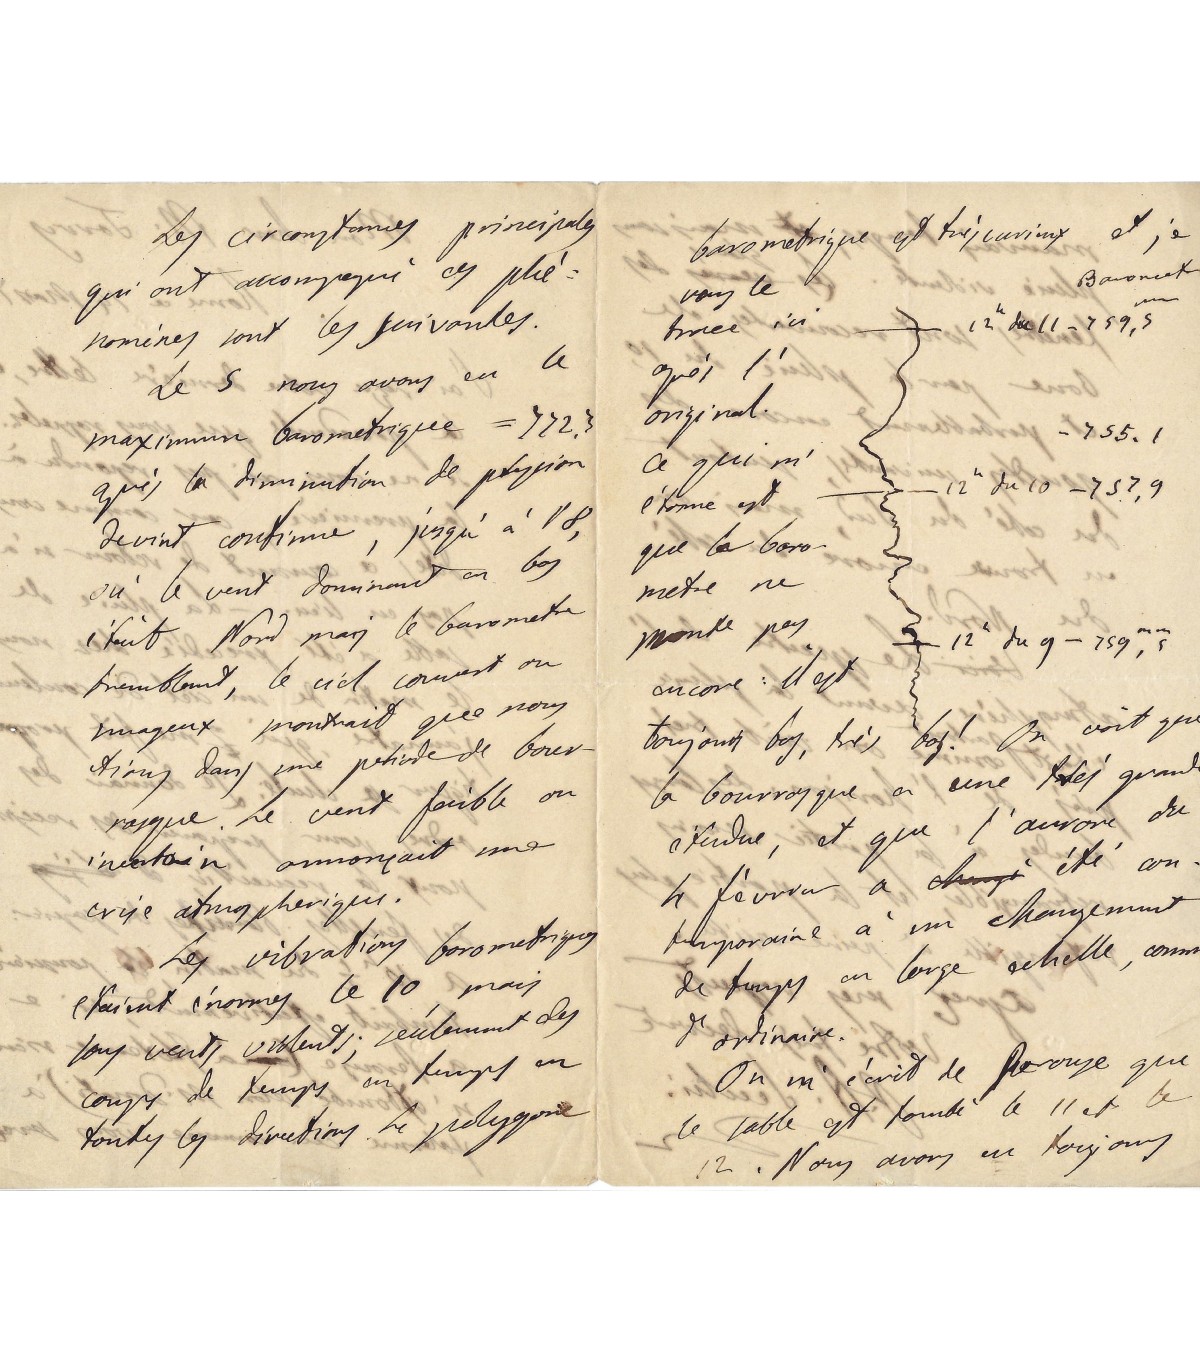 Les circonstances principales
qui ont accompagné ces phé=
nomènes sont les suivantes.
Le 5 nous avons eu le
maximum barometrique = 772.3
après la diminution de pression
devint continue, jusqu'à l'8,
où le vent dominant en bas
était Nord mais le barometre
tremblant, le ciel couvert ou
nuageux montrait que nous
étions dans une periode de bour-
rasque. Le vent faible ou
incertain annonçait une
crise atmospherique.
Les vibrations barometriques
étaient énormes le 10 mais
sans vents violents; seulement des
coups de temps en temps en
toutes les directions. Le polygone
barometrique est très curieux et je
vous le
trace ici
après l'
original.
Ce qui m'
étonne est
que le baro-
metre ne
monte pas
encore: il est
toujours bas, très bas! On voit que
la bourrasque a une très grande
étendue, et que l'aurore du
4 février a changé été con-
temporaine à un changement
de temps en large echelle, comme
d'ordinaire.
On m'écrit de Perouse que
le sable est tombé le 11 et le
12. Nous avons eu toujours
Baromet
mm
12h du 11 - 759,5
- 755.1
12h du 10 - 757,9
12h du 9 - 759mm,5